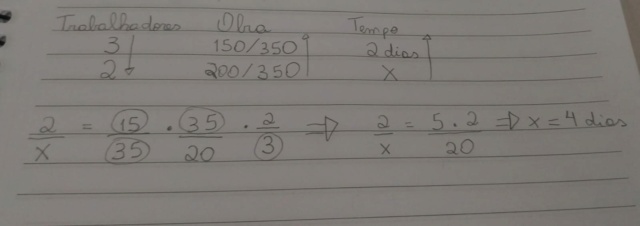 Trabalhadores Obra Tempo
3 150/350 2 dias
2 200/350 x
2/x = 15/35 · 35/20 · 2/3 ⇒ 2/x = 5 · 2/20 ⇒ x = 4 dias